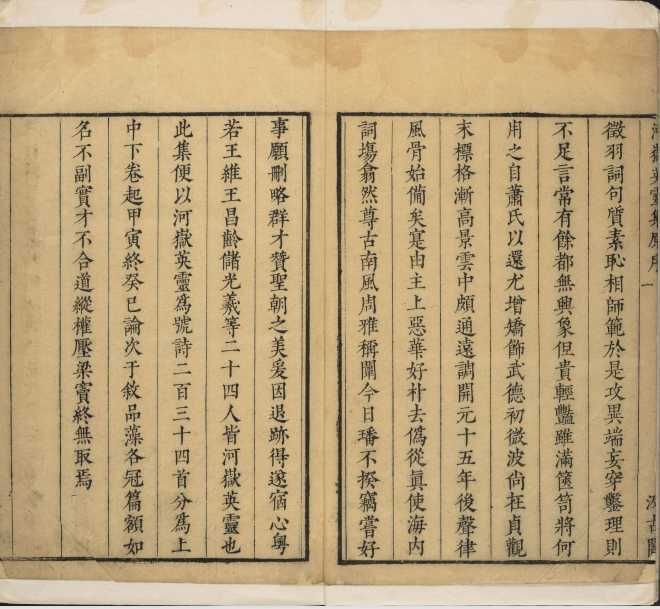 河嶽英靈集原序 一
汲古閣
徵羽詞句質素恥相師範於是攻異端妄穿鑿理則
不足言常有餘都無興象但貴輕豔雖滿篋笥將何
用之自蕭氏以還尤增矯飾武德初微波尚在貞觀
末標格漸高景雲中頗通遠調開元十五年後聲律
風骨始備矣寔由主上惡華好朴去僞從眞使海內
詞塲翕然尊古南風周雅稱闡今日璠不揆竊嘗好
事願刪略群才贊聖朝之美爰因退跡得遂宿心粤
若王維王昌齡儲光羲等二十四人皆河嶽英靈也
此集便以河嶽英靈爲號詩二百三十四首分爲上
中下卷起甲寅終癸巳論次于敘品藻各冠篇額如
名不副實才不合道縱權壓梁竇終無取焉